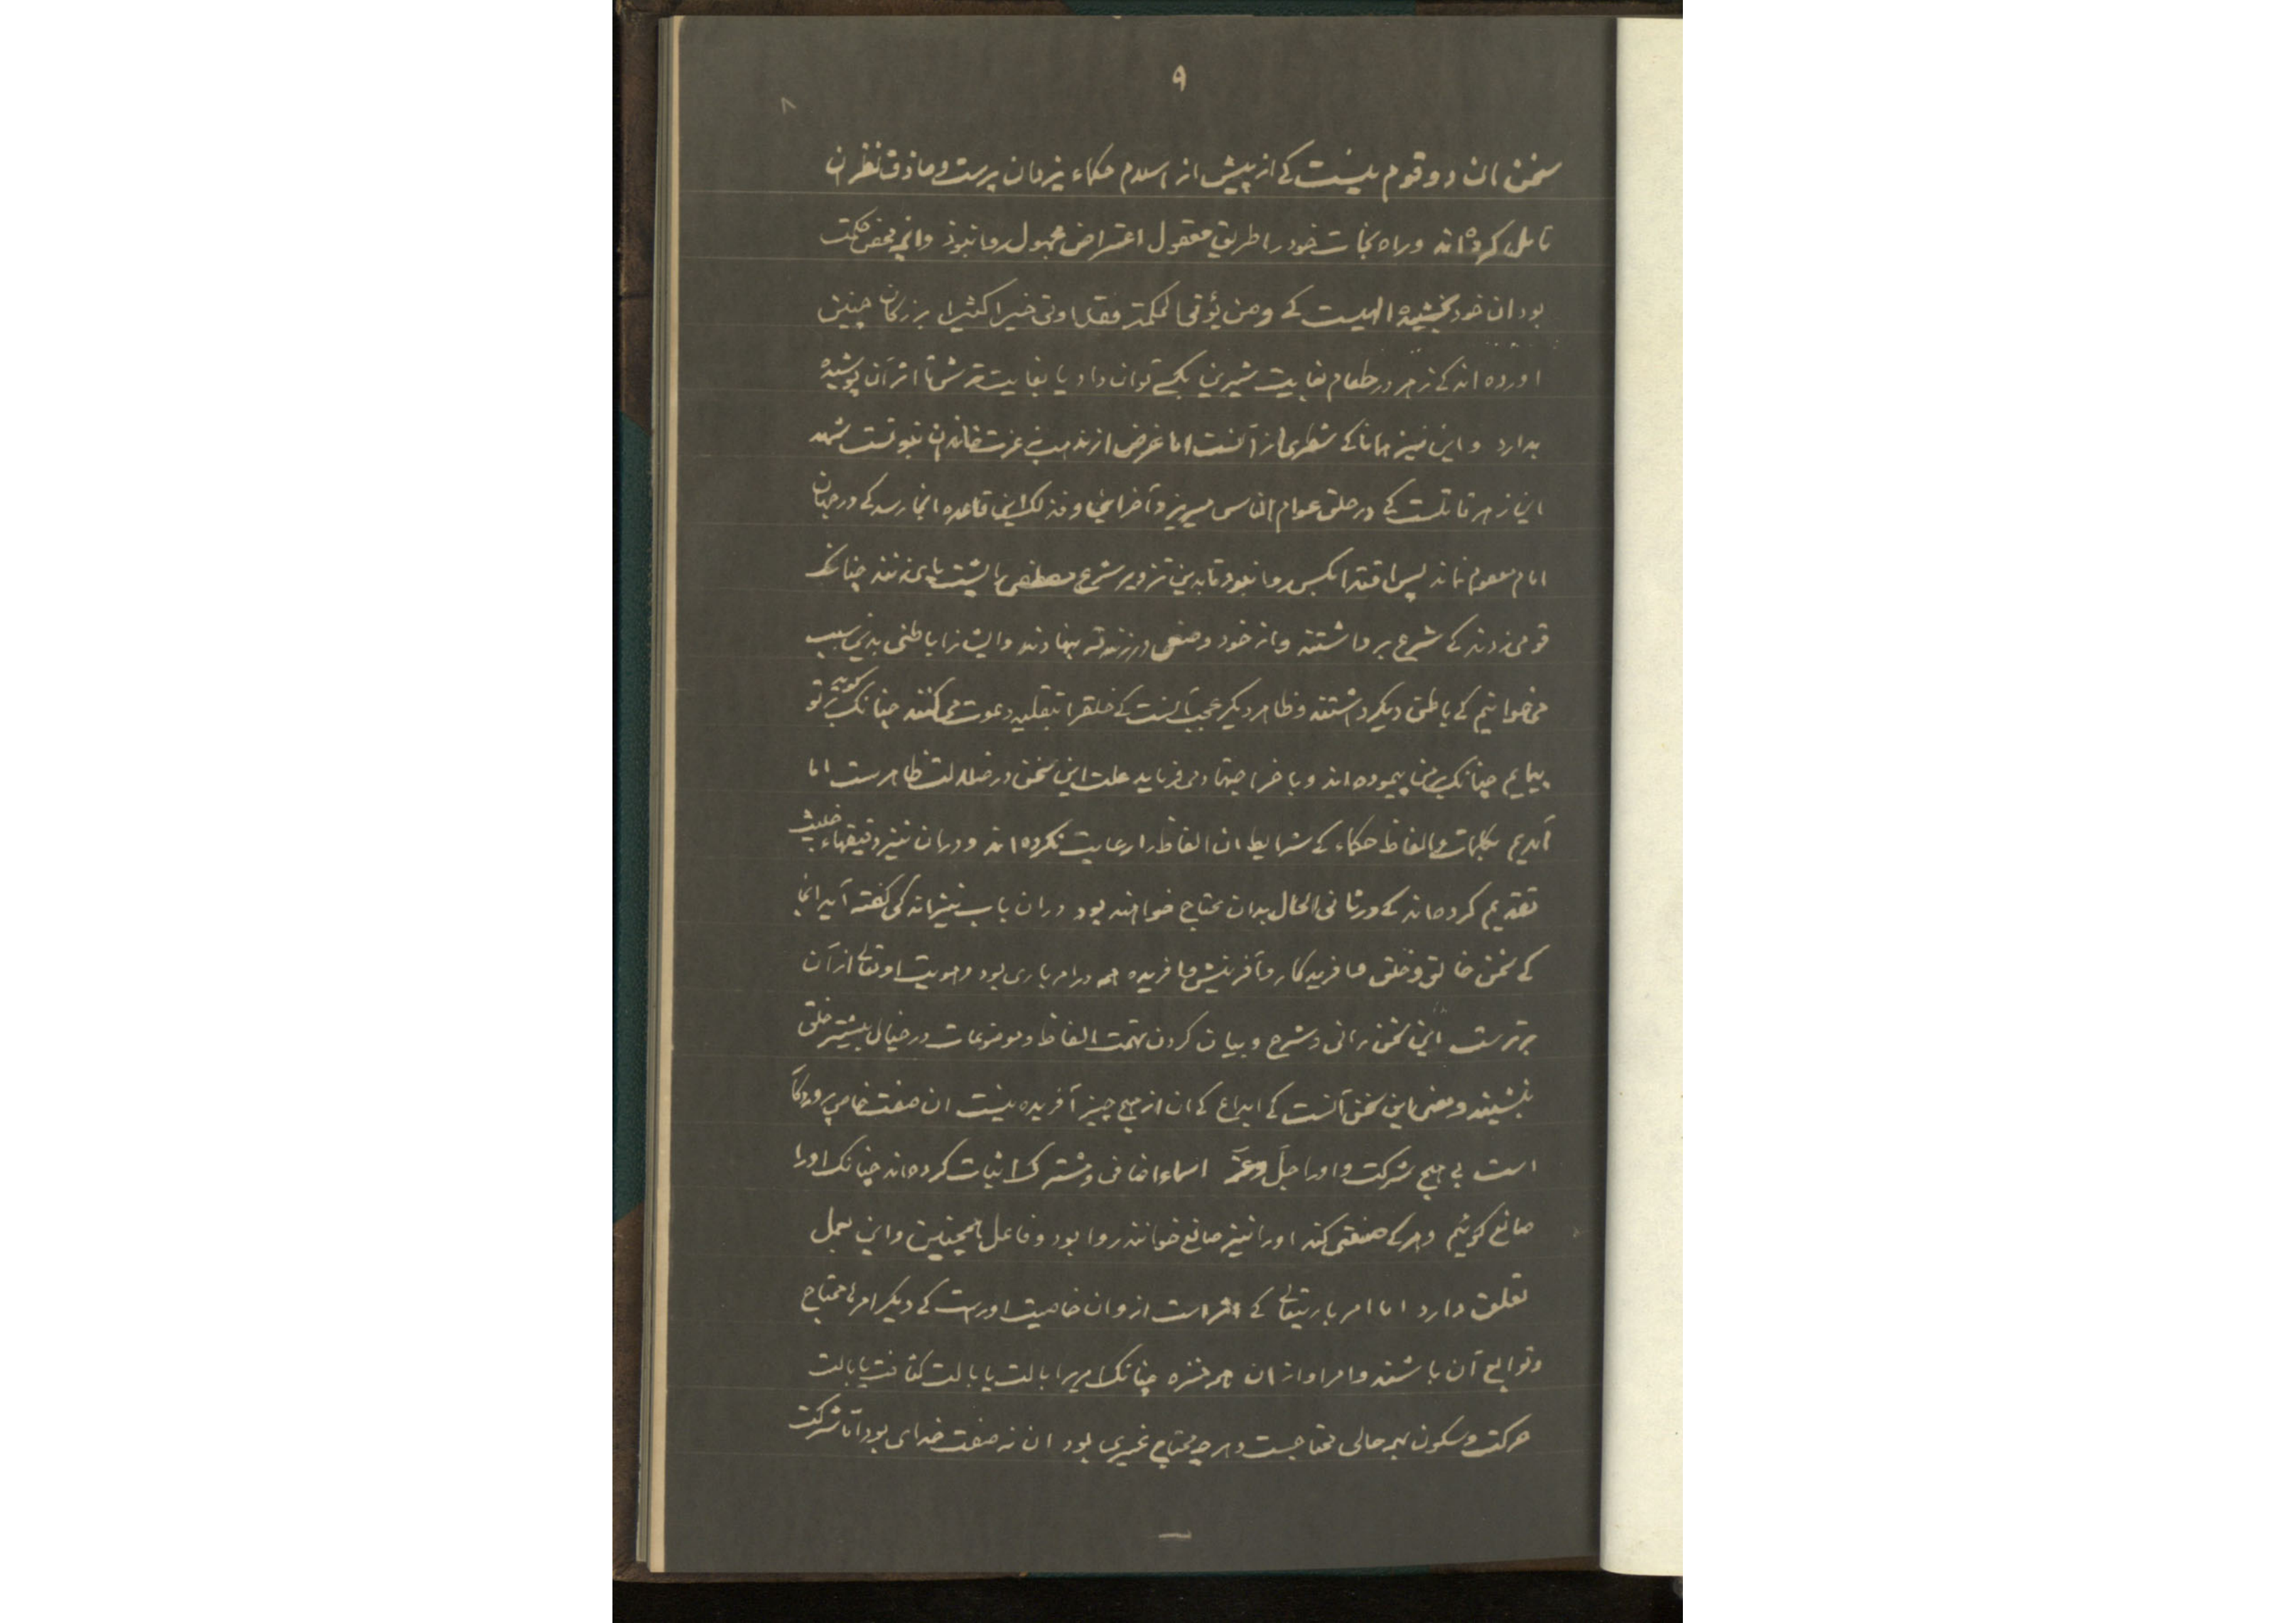 ۹
۸
سخن ان دو قوم نیست کے از پیش از اسلام حکماء یزدان پرست و حاذق نظر ان
تامل کرده اند و راه نجات خود را طریق معقول اعتراض مجهول روا نبوذ وانچه محض حکمت
بود ان خود بخشیده الهیست کے ومن یؤتی الحکمة فقد اوتی خیرا کثیرا بزرکان چنین
اورده اند کے زهر در طعام بغایت شیرین بکسے توان داد یا بغایت ترش تا اثر آن پوشیده
بدارد و این نیز همانا کے شطری از آنست اما غرض از مذهب بے عزت خاندن نبوتست شهد
این زهر قاتلست کے در حلق عوام الناس میریزد و آخر این و فذلک این قاعده انجا رسد کے در جهان
امام معصوم نماند پس اقتدا بکس روا نبود تا بدین تزویر شرع مصطفی را پشت پای زنند چنانک
قومی زدند کے شرع برداشتند و از خود وضعی در زندقه بنهادند و ایشانرا باطنی بدین سبب
می خوانیم کے باطن دیکر داشتند و ظاهر دیکر عجب آنست کے خلق را بتقلید دعوت می کنند چنانک کویند بر تو
پیمایم چنانک بر من پیموده اند و باخر اجتهاد می فرماید علت این سخن در ضلالت ظاهرست اما
آمدیم بکلمات و الفاظ حکماء کے شرایط ان الفاظ را رعایت نکرده اند و دران نیز دقیقهاء خلیث
تقدیم کرده اند کے در ثانی الحال بدان محتاج خواهند بود دران باب نیز اندکی کفته آید انجا
کے سخن خالق و خلق و افریدکار و آفرینش و افریده همه در امر باری بود و هویت او تعالے از آن
برترست این سخن رانی و شرح و بیان کردن بتهمت الفاظ و موضوعات در خیال بیشتر خلق
بنشیند و معنی این سخن آنست کے ابداع کے ان از هیچ چیز آفریده نیست ان صفت خاص پروردکار
است بے هیچ شرکت و او را جلّ و عزّ اسماء اضافی و مشترک اثبات کرده اند چنانک او را
صانع کوئیم و هر کے صنعتی کند او را نیز صانع خوانند روا بود و فاعل همچنین و این بعمل
تعلق دارد اما امر باریتعالے کے اثر است از و ان خاصیت اوراست کے دیکر امرها محتاج
و توابع آن باشند و امر او از ان همه منزه چنانک امر را بالت یا بالت کتابت یا بالت
حرکت و سکون بهر حالی محتاجست و هر چه محتاج غیری بود ان نه صفت خدای بود اما شرکت